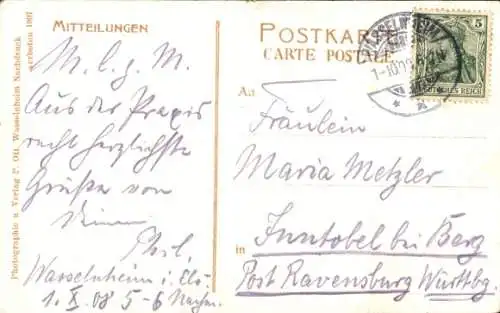 Photographie u Verlag P. Ott Wasselnheim Nachdruck verboten 1907
MITTEILUNGEN
M. l. g. M.
Aus der Praxis
recht herzlichste
Grüße von
Deinem
Phil.
Wasselnheim i. Els.
1. X. 08 5-6 Nachm.
POSTKARTE
CARTE POSTALE
5
DEUTSCHES REICH
An
Fräulein
Maria Metzler
in Inntobel bei Berg
Post Ravensburg Württbg.